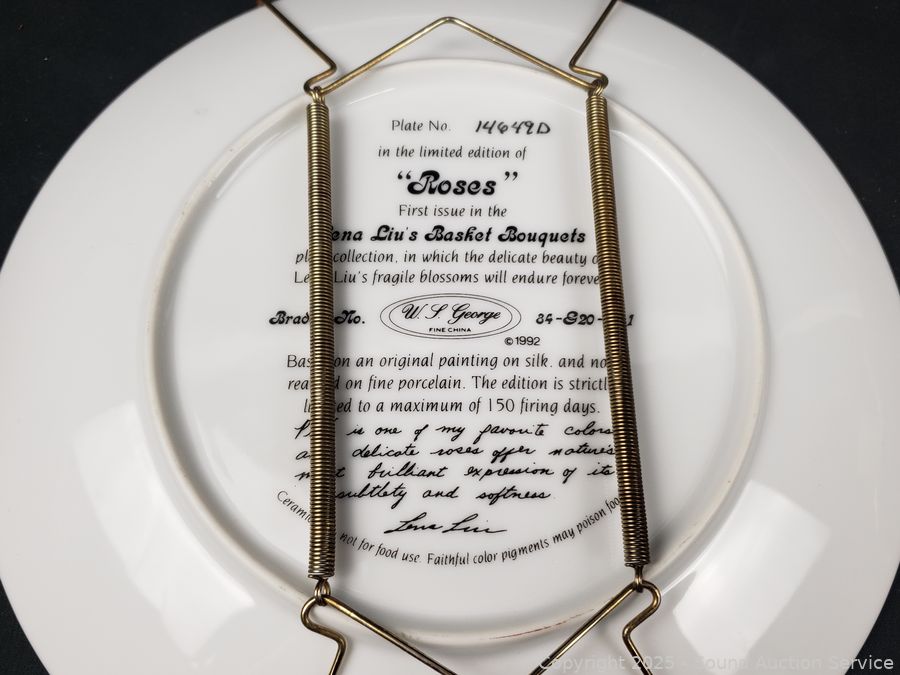 Plate No. 14649D
in the limited edition of
"Roses"
First issue in the
ena Liu's Basket Bouquets
pl collection, in which the delicate beauty o
Le Liu's fragile blossoms will endure foreve
Brad No. W. S. George 84-G20- 1
FINE CHINA
© 1992
Bas on an original painting on silk. and no
rea d on fine porcelain. The edition is strictl
li ed to a maximum of 150 firing days.
P is one of my favorite colors
a delicate roses offer nature's
m t brilliant expression of its
subtlety and softness.
Lena Liu
Ceramic not for food use. Faithful color pigments may poison foo
Copyright 2025 - Sound Auction Service